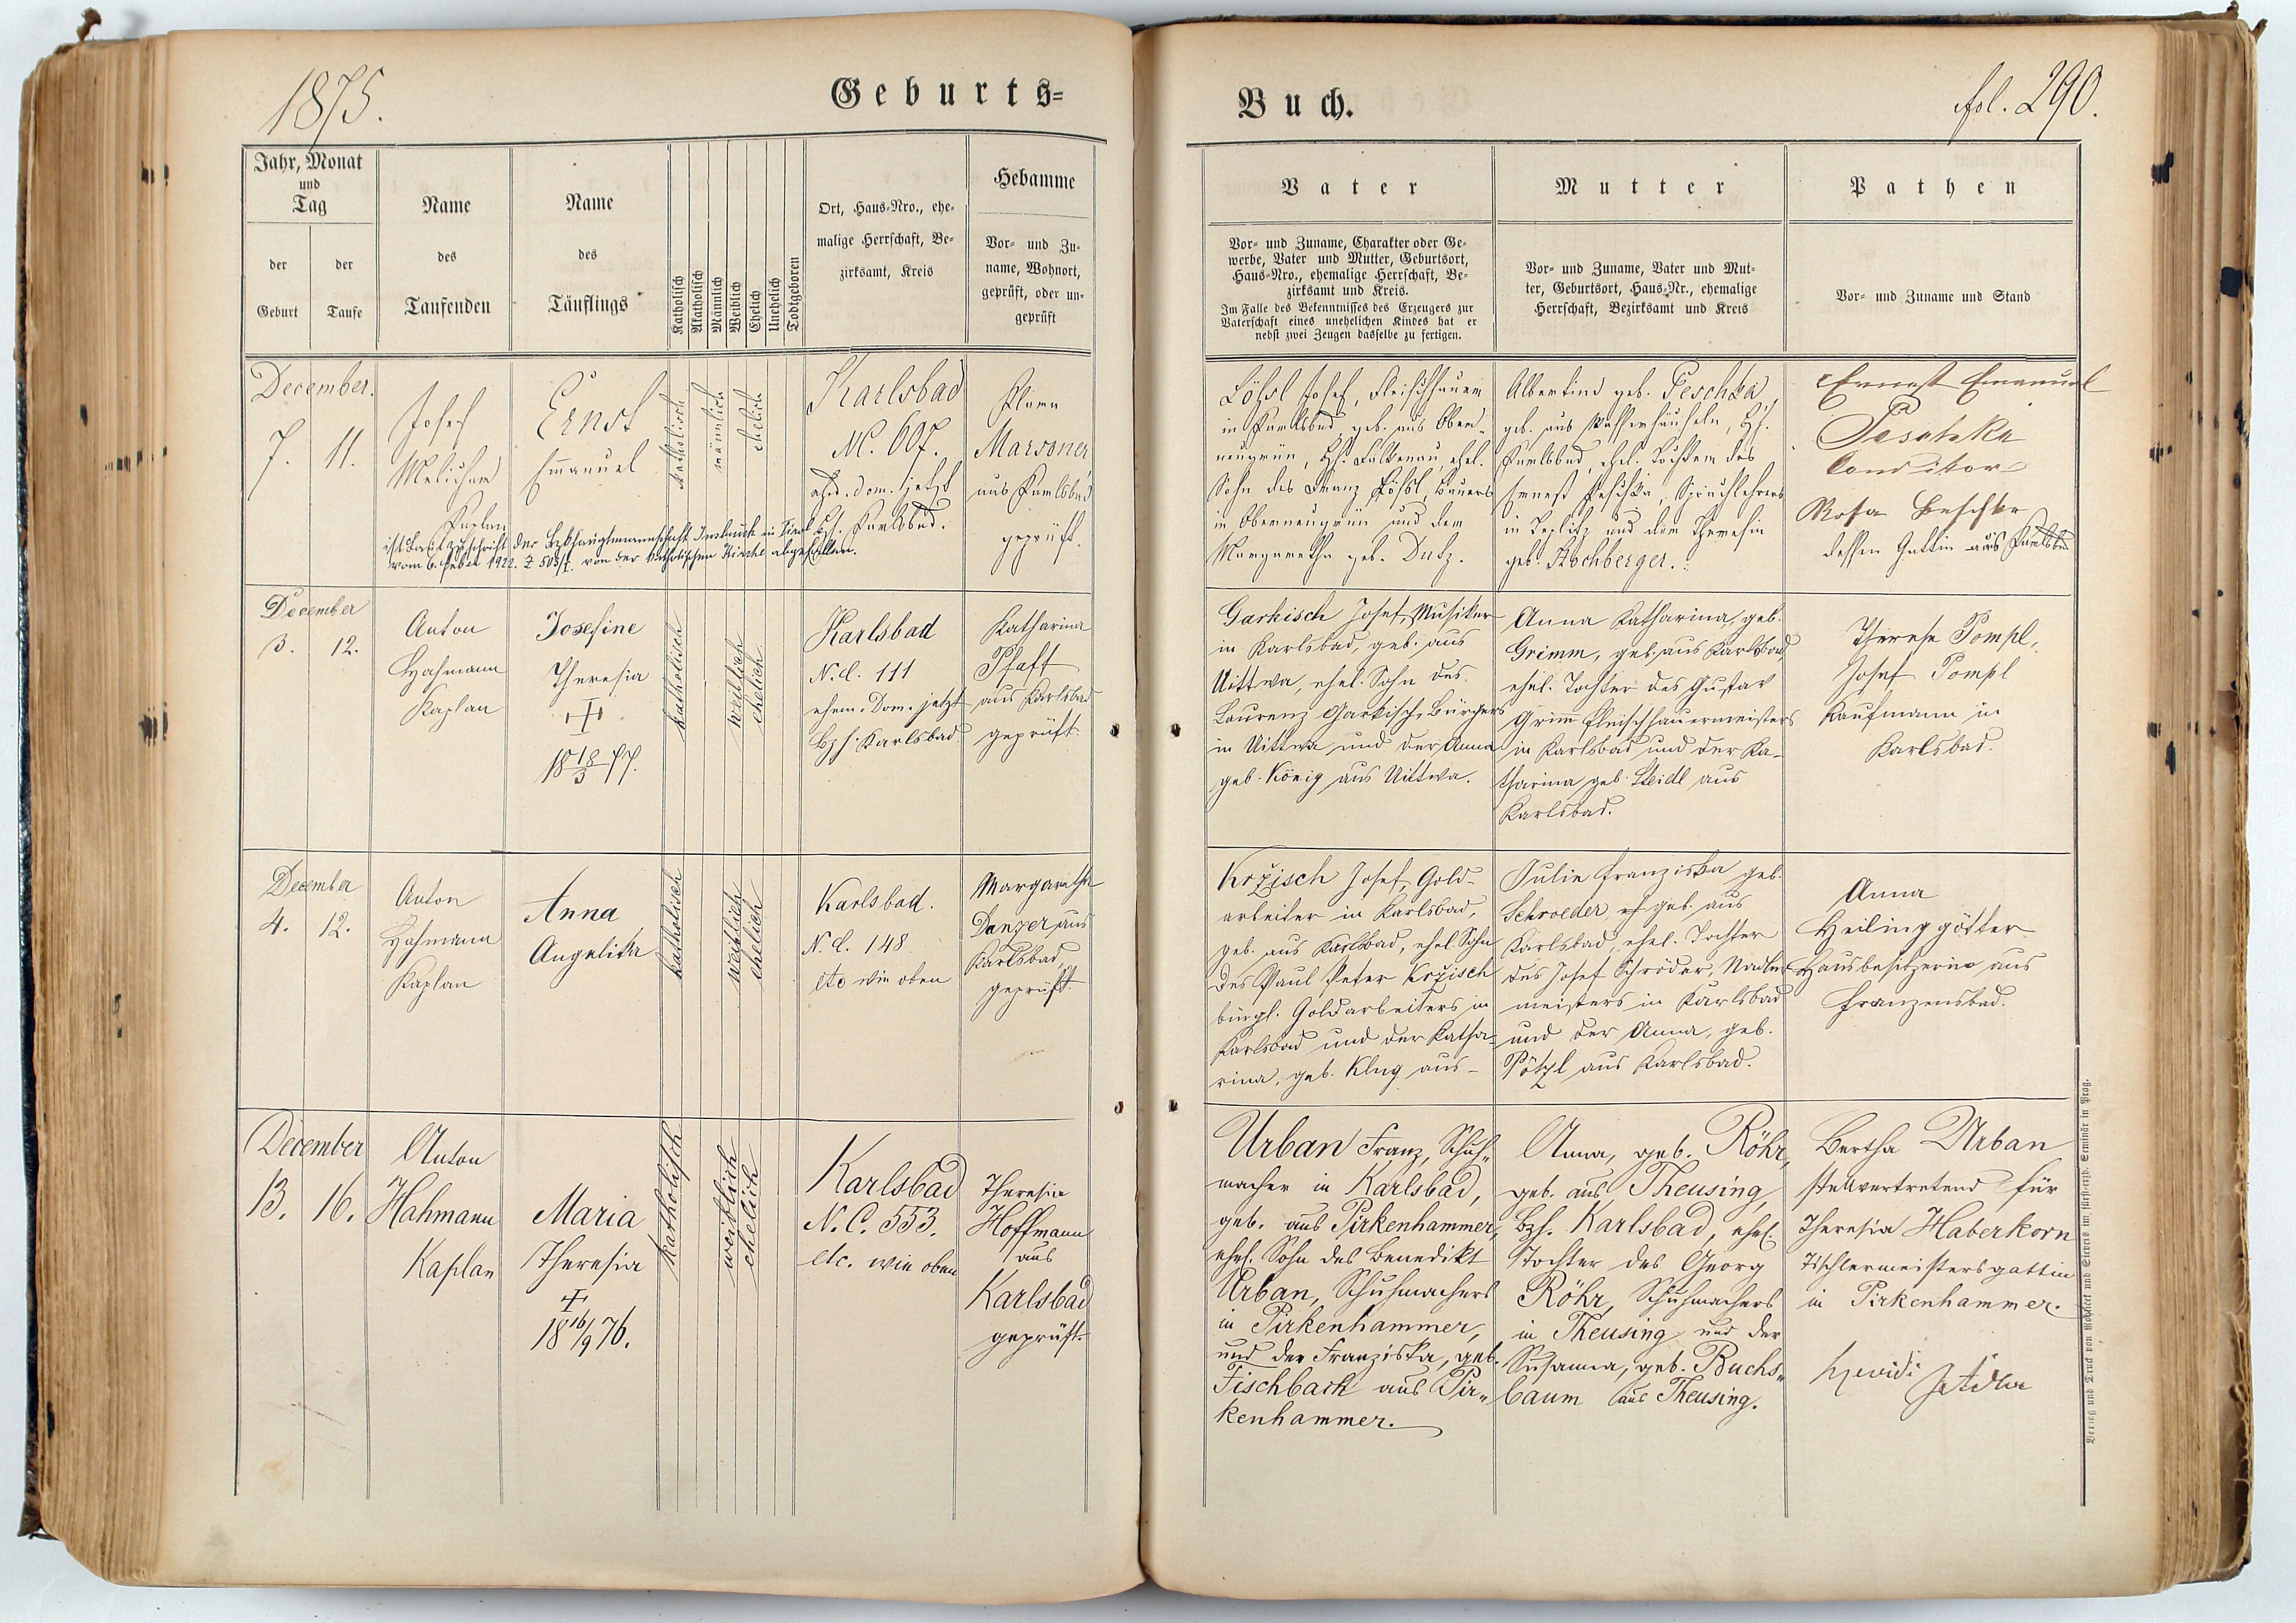 1875.
Geburts-
Jahr, Monat
und
Tag
der
Geburt
der
Taufe
Name
des
Taufenden
Name
des
Täuflings
Katholisch
Akatholisch
Männlich
Weiblich
Ehelich
Unehelich
Todtgeboren
Ort, Haus-Nro., ehe-
malige Herrschaft, Be-
zirksamt, Kreis
Hebamme
Vor- und Zu-
name, Wohnort,
geprüft, oder un-
geprüft
December.
7. 11.
Josef
Melichar
Kaplan
Ernst
Emanuel
katholisch
männlich
ehelich
Karlsbad
N. 607.
ehed. dom. jetzt
Bzh. Karlsbad.
Klara
Marsoner
aus Karlsbad
geprüft.
ist laut Zuschrift der Bzkhauptmannschaft Insbruck in Tirol
vom 6. Feber 1922. Z 503/I. von der katholischen Kirche abgefallen.
December
3. 12.
Anton
Hahmann
Kaplan
Josefine
Theresia
18 18/3 77.
katholisch
weiblich
ehelich
Karlsbad
N.C. 111
ehem. Dom. jetzt
Bzh. Karlsbad.
Katharina
Pfaft
aus Karlsbad
geprüft
December
4. 12.
Anton
Hahmann
Kaplan
Anna
Angelika
katholisch
weiblich
ehelich
Karlsbad.
N.C. 148
etc wie oben
Margaretha
Danzer aus
Karlsbad,
geprüft.
December
13. 16.
Anton
Hahmann
Kaplan
Maria
Theresia
18 16/9 76.
katholisch
weiblich
ehelich
Karlsbad
N.C. 553.
etc. wie oben
Theresia
Hoffmann
aus
Karlsbad
geprüft.
Buch.
fol. 290.
Vater
Vor- und Zuname, Charakter oder Ge-
werbe, Vater und Mutter, Geburtsort,
Haus-Nro., ehemalige Herrschaft, Be-
zirksamt und Kreis.
Im Falle des Bekenntnisses des Erzeugers zur
Vaterschaft eines unehelichen Kindes hat er
nebst zwei Zeugen dasselbe zu fertigen.
Mutter
Vor- und Zuname, Vater und Mut-
ter, Geburtsort, Haus-Nr., ehemalige
Herrschaft, Bezirksamt und Kreis
Pathen
Vor- und Zuname und Stand
Lößl Josef, Fleischhauer
in Karlsbad, geb. aus Ober-
neugrün, Bzh. Falkenau, ehel.
Sohn des Franz Lößl, Bauers
in Oberneugrün und der
Margaretha geb. Dutz.
Albertine geb. Peschka,
geb. aus Bzh.
Karlsbad, ehel. Tochter des
Ernest Peschka, Sprachlehrers
in Teplitz und der Theresia
geb. Kochberger.
Ernest Emanuel
Peschka
Conditor
Rosa Peschka
dessen Gattin aus Karlsbad
Garkisch Josef, Musiker
in Karlsbad, geb. aus
Uittwa, ehel. Sohn des
Laurenz Garkisch, Bürgers
in Uittwa und der Anna
geb. König aus Uittwa.
Anna Katharina, geb.
Grimm, geb. aus Karlsbad,
ehel. Tochter des Gustav
Grimm Fleischhauermeisters
in Karlsbad und der Ka-
tharina geb. Steidl aus
Karlsbad.
Therese Pompl,
Josef Pompl
Kaufmann in
Karlsbad.
Kržisch Josef, Gold-
arbeiter in Karlsbad,
geb. aus Karlsbad, ehel. Sohn
des Paul Peter Kržisch
bürgl. Goldarbeiters in
Karlsbad und der Katha-
rina, geb. Klug aus -
Julie Franziska geb.
Schroeder, geb. aus
Karlsbad, ehel. Tochter
des Josef Schröder, Nadler-
meisters in Karlsbad
und der Anna, geb.
Pötzl aus Karlsbad.
Anna
Heilinggötter
Hausbesitzerin aus
Franzensbad.
Urban Franz, Schuh-
macher in Karlsbad,
geb. aus Pirkenhammer,
ehel. Sohn des Benedikt
Urban, Schuhmachers
in Pirkenhammer,
und der Franziska, geb.
Fischbach aus Pir-
kenhammer.
Anna, geb. Röhr,
geb. aus Theusing,
Bzh. Karlsbad, ehel.
Tochter des Georg
Röhr, Schuhmachers
in Theusing und der
Susanna, geb. Buchs-
baum aus Theusing.
Bertha Urban
stellvertretend für
Theresia Haberkorn
Tischlermeistersgattin
in Pirkenhammer.
Verlag und Druck von Rohliček und Sievers im fürsterzb. Seminär in Prag.